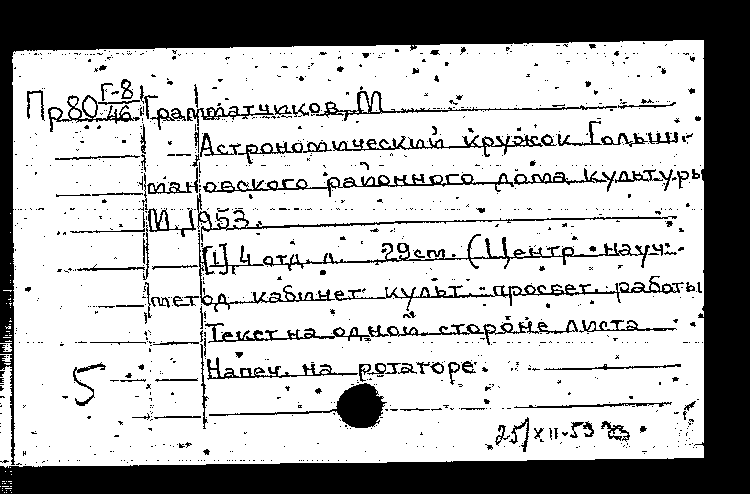 Пр80 Г-8/46 Грамматчиков, М
Астрономический кружок Гольши-
мановского районного дома культуры
М., 1953.
[1], 4 отд. л. 29см. (Центр. науч.-
метод кабинет культ.-просвет. работы
Текст на одной стороне листа
Напеч. на ротаторе.
5
25/XII-53